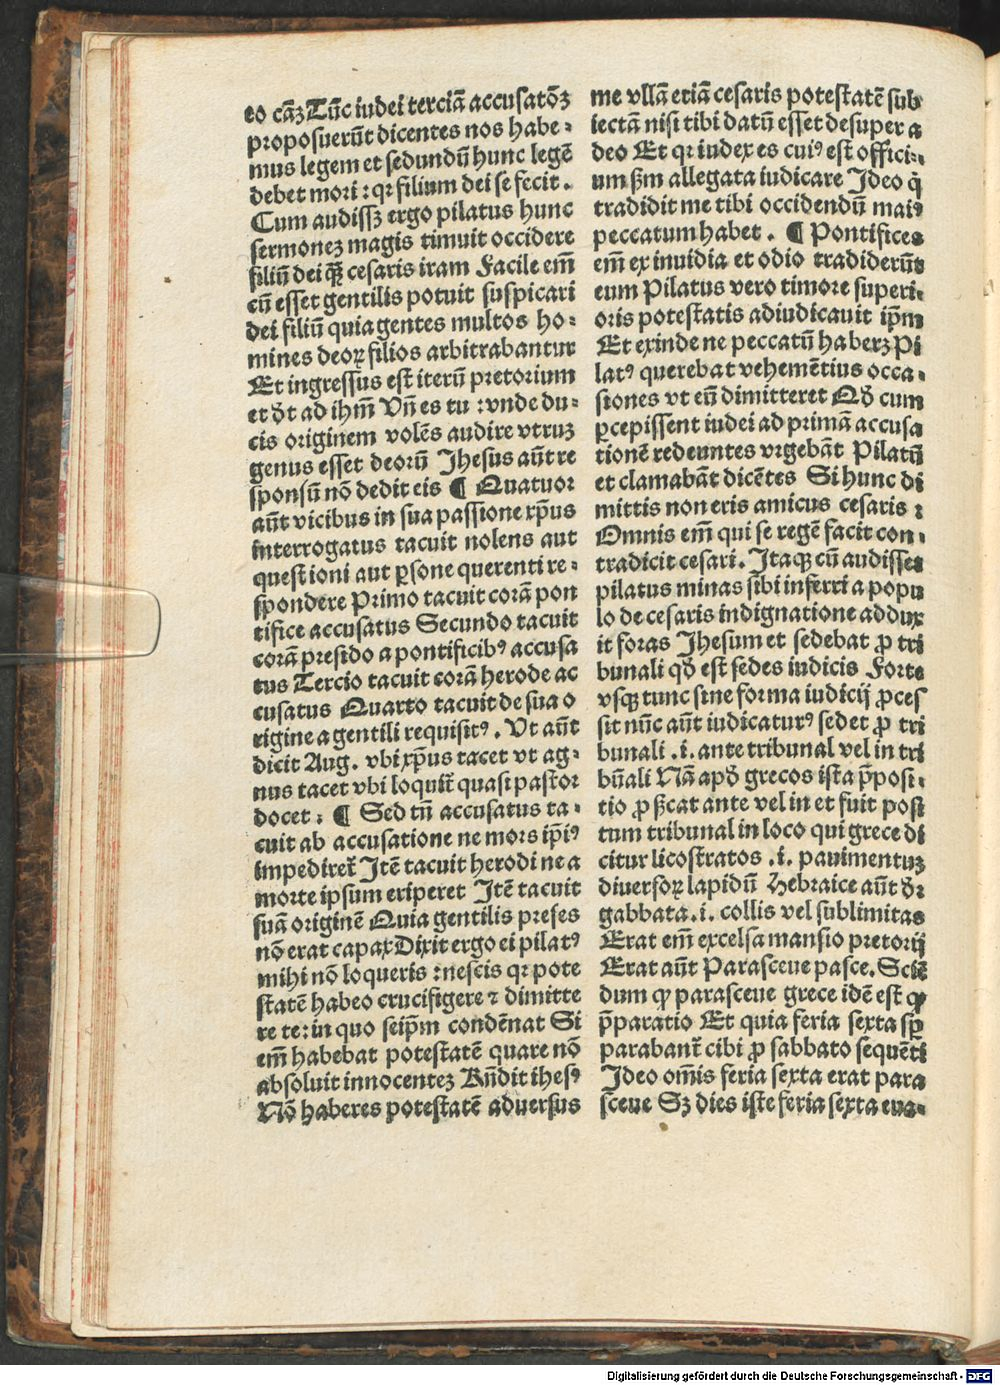 eo cãꝫ Tũc iudei terciã accusatõꝫ
proposuerũt dicentes nos habe-
mus legem et sedundũ hunc legẽ
debet mori : qꝛ filium dei se fecit .
Cum audissꝫ ergo pilatus hunc
sermoneꝫ magis timuit occidere
filiũ dei ꝙ̃ cesaris iram Facile em̃
cũ esset gentilis potuit suspicari
dei filiũ quia gentes multos ho-
mines deoꝝ filios arbitrabantur
Et ingressus est iterũ pretorium
et ð̃t ad ihm̃ Vñ es tu : vnde du-
cis originem volẽs audire vtruꝫ
genus esset deorũ Jhesus aũt re
sponsũ nõ dedit eis ¶ Quatuor
aũt vicibus in sua passione xp̃us
interrogatus tacuit nolens aut
questioni aut ꝑsone querenti re-
spondere Primo tacuit corã pon
tifice accusatus Secundo tacuit
corã presido a pontificibꝰ accusa
tus Tercio tacuit corã herode ac
cusatus Quarto tacuit de sua o
rigine a gentili requisitꝰ . Vt aũt
dicit Aug. vbi xp̃us tacet vt ag-
nus tacet vbi loquit̃ quasi pastor
docet : ¶ Sed tñ accusatus ta-
cuit ab accusatione ne mors ip̃iꝰ
impediret̃ Itẽ tacuit herodi ne a
morte ipsum eriperet Itẽ tacuit
suã originẽ Quia gentilis preses
nõ erat capax Dixit ergo ei pilatꝰ
mihi nõ loqueris : nescis qꝛ pote
statẽ habeo crucifigere ⁊ dimitte
re te : in quo seip̃m condẽnat Si
em̃ habebat potestatẽ quare nõ
absoluit innocenteꝫ Rñdit ihesꝰ
Nõ haberes potestatẽ aduersus
me vllã etiã cesaris potestatẽ sub
iectã nisi tibi datũ esset desuper a
deo Et qꝛ iudex es cuiꝰ est offici-
um ẜm allegata iudicare Ideo q̇
tradidit me tibi occidendũ maiꝰ
peccatum habet . ¶ Pontifices
em̃ ex inuidia et odio tradiderũt
eum Pilatus vero timore superi-
oris potestatis adiudicauit ip̃m
Et exinde ne peccatũ haberꝫ Pi
latꝰ querebat vehemẽtius occa-
siones vt eũ dimitteret Qð cum
ꝑcepissent iudei ad primã accusa
tionẽ redeuntes vrgebãt Pilatũ
et clamabãt dicẽtes Si hunc di
mittis non eris amicus cesaris :
Omnis em̃ qui se regẽ facit con-
tradicit cesari . Itaqꝫ cũ audisset
pilatus minas sibi inferri a popu
lo de cesaris indignatione addux
it foras Jhesum et sedebat ꝓ tri
bunali qð est sedes iudicis Forte
vsqꝫ tunc sine forma iudicij ꝓces
sit nũc aũt iudicaturꝰ sedet ꝓ tri
bunali .i. ante tribunal vel in tri
bũali Nã apð grecos ista p̃posi-
tio pro ẜcat ante vel in et fuit posi
tum tribunal in loco qui grece di
citur licostratos .i. pauimentuꝫ
diuersoꝝ lapidũ Hebraice aũt ðr
gabbata .i. collis vel sublimitas
Erat em̃ excelsa mansio pretorij
Erat aũt Parasceue pasce. Sciẽ
dum ꝙ parasceue grece idẽ est ꝙ
p̃paratio Et quia feria sexta sp̃
parabant̃ cibi ꝓ sabbato sequẽti
Ideo om̃is feria sexta erat para
sceue Sꝫ dies iste feria sexta eua-
Digitalisierung gefördert durch die Deutsche Forschungsgemeinschaft - DFG